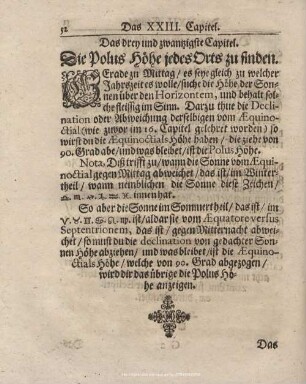 52 Das XXIII. Capitel.
Das drey und zwantzigste Capitel.
Die Polus Höhe jedes Orts zu finden.
GErade zu Mittag / es seye gleich zu welcher
Jahrszeit es wolle / suche die Höhe der Son-
nen über den Horizontem, und behalt sol-
che fleissig im Sinn. Darzu thue die Decli-
nation oder Abweichung derselbigen vom Æquino-
ctial (wie zuvor im 16. Capitel gelehret worden) so
wirst du die Æquinoctials Höhe haben / die ziehe von
90. Grad abe / und was bleibet / ist die Polus Höhe.
Nota. Diß trifft zu / wann die Sonne vom Æqui-
noctial gegen Mittag abweichet / das ist / im Winter-
theil / wann nemblichen die Sonne diese Zeichen /
♎. ♏. ♐. ♑. ♒. ♓. innen hat.
So aber die Sonne im Sommertheil / das ist / im
♈. ♉. ♊. ♋. ♌. ♍. ist / aldar sie vom Æquatore versus
Septentrionem, das ist / gegen Mitternacht abwei-
chet / so must du die declination von gedachter Son-
nen Höhe abziehen / und was bleibet / ist die Æquino-
ctials Höhe / welche von 90. Grad abgezogen /
wird dir das übrige die Polus Hö-
he anzeigen.
Das